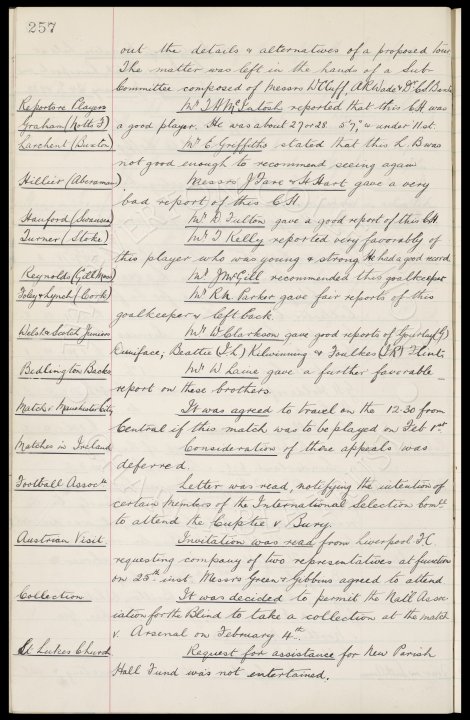 257
out the details & alternatives of a proposed tour
The matter was left in the hands of a Sub-
Committee composed of Messrs W. Cuff, A.R. Wade & Dr C.S. Baxter
Reports re Players Mr T.H. McIntosh reported that this C.H. was
Graham (Notts F) a good player. He was about 27 or 28 5'7" & under 11 st.
Larchent (Buxton) Mr E. Griffiths stated that this L.B. was
not good enough to recommend seeing again
Hillier (Aberaman) Messrs J. Fare & H. Hart gave a very
bad report of this C.H.
Hanford (Swansea) Mr D. Fulton gave a good report of this C.H.
Turner (Stoke) Mr T. Kelly reported very favorably of
this player who was young & strong He had a good record
Reynolds (Gill Moss) Mr J. McGill recommended this goalkeeper
Foley & Lynch (Cork) Mr R.M. Parker gave fair reports of this
goalkeeper & left back.
Welsh & Scotch Juniors Mr W. Clarkson gave good reports of
Beattie (I.L) Kilwinning & Foulkes (I.R) Flint.
Bedlington Backs Mr W. Laine gave a further favorable
report on these brothers
Match v. Manchester City It was agreed to travel on the 12-30 from
Central if this match was to be played on Feb 1st.
Matches in Ireland Consideration of these appeals was
deferred.
Football Assocn Letter was read, notifying the intention of
certain Members of the International Selection Comtee
to attend the Cuptie v Bury.
Austrian Visit Invitation was read from Liverpool F.C.
requesting company of two representatives at function
on 25th inst. Messrs Green & Gibbins agreed to attend
Collection It was decided to permit the Natl Assoc-
iation for the Blind to take a collection at the match
v. Arsenal on February 4th.
St Lukes Church Request for assistance for New Parish
Hall Fund was not entertained.